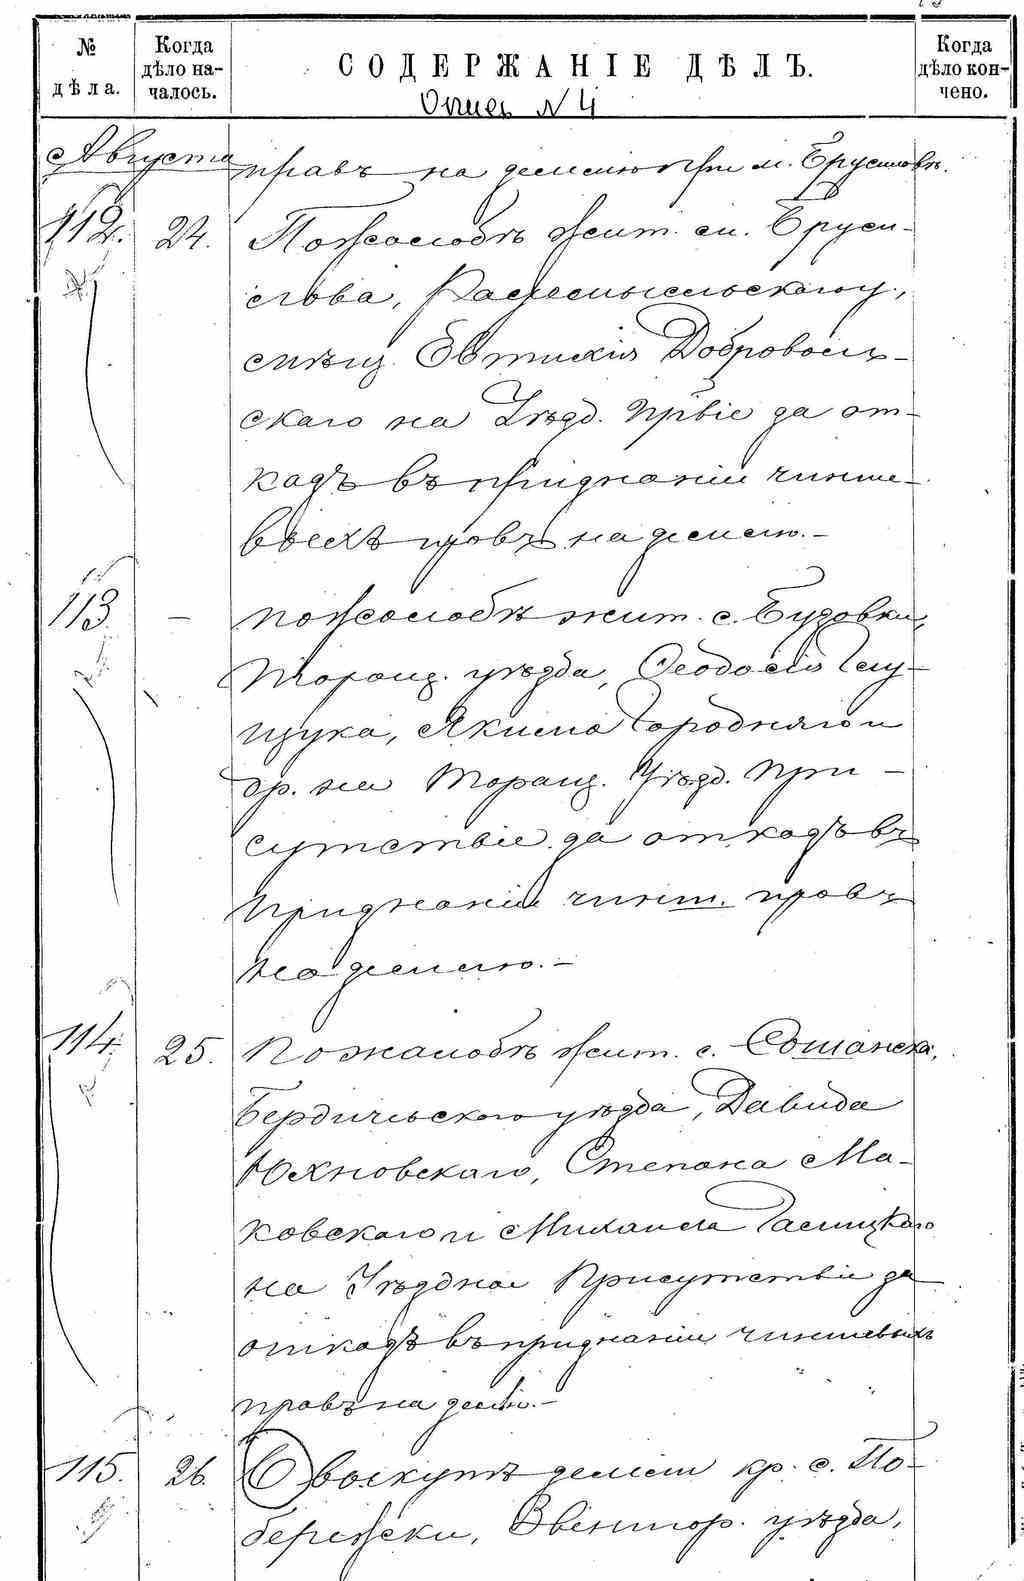 № дѣла.
Когда дѣло началось.
СОДЕРЖАНІЕ ДѢЛЪ.
Когда дѣло кончено.
Опись N 4
Августа
правъ на землю при м. Брусиловѣ.
112. 24. По жалобѣ жит. м. Бруси-
лова, Радомысльскаго у.,
мѣщ. Добровол-
скаго на Уѣзд. за от-
казъ въ признаніи чинше-
выхъ правъ на землю.-
113. - По жалобѣ жит. с. Будовки,
Таращ. уѣзда, Феодосія Глу-
щука, Якима Городняго и
др. на Таращ. Уѣзд. При-
сутствіе за отказъ въ
признаніи чинш. правъ
на землю.-
114. 25. По жалобѣ жит. с. Сошанска,
Бердичевскаго уѣзда, Давида
Юхновскаго, Степана Ма-
ковскаго и Михаила
на Уѣздное Присутствіе за
отказъ въ признаніи чиншевыхъ
правъ на землю.-
115. 26. О выкупѣ земли кр. с. По-
бережки, Звенигор. уѣзда,